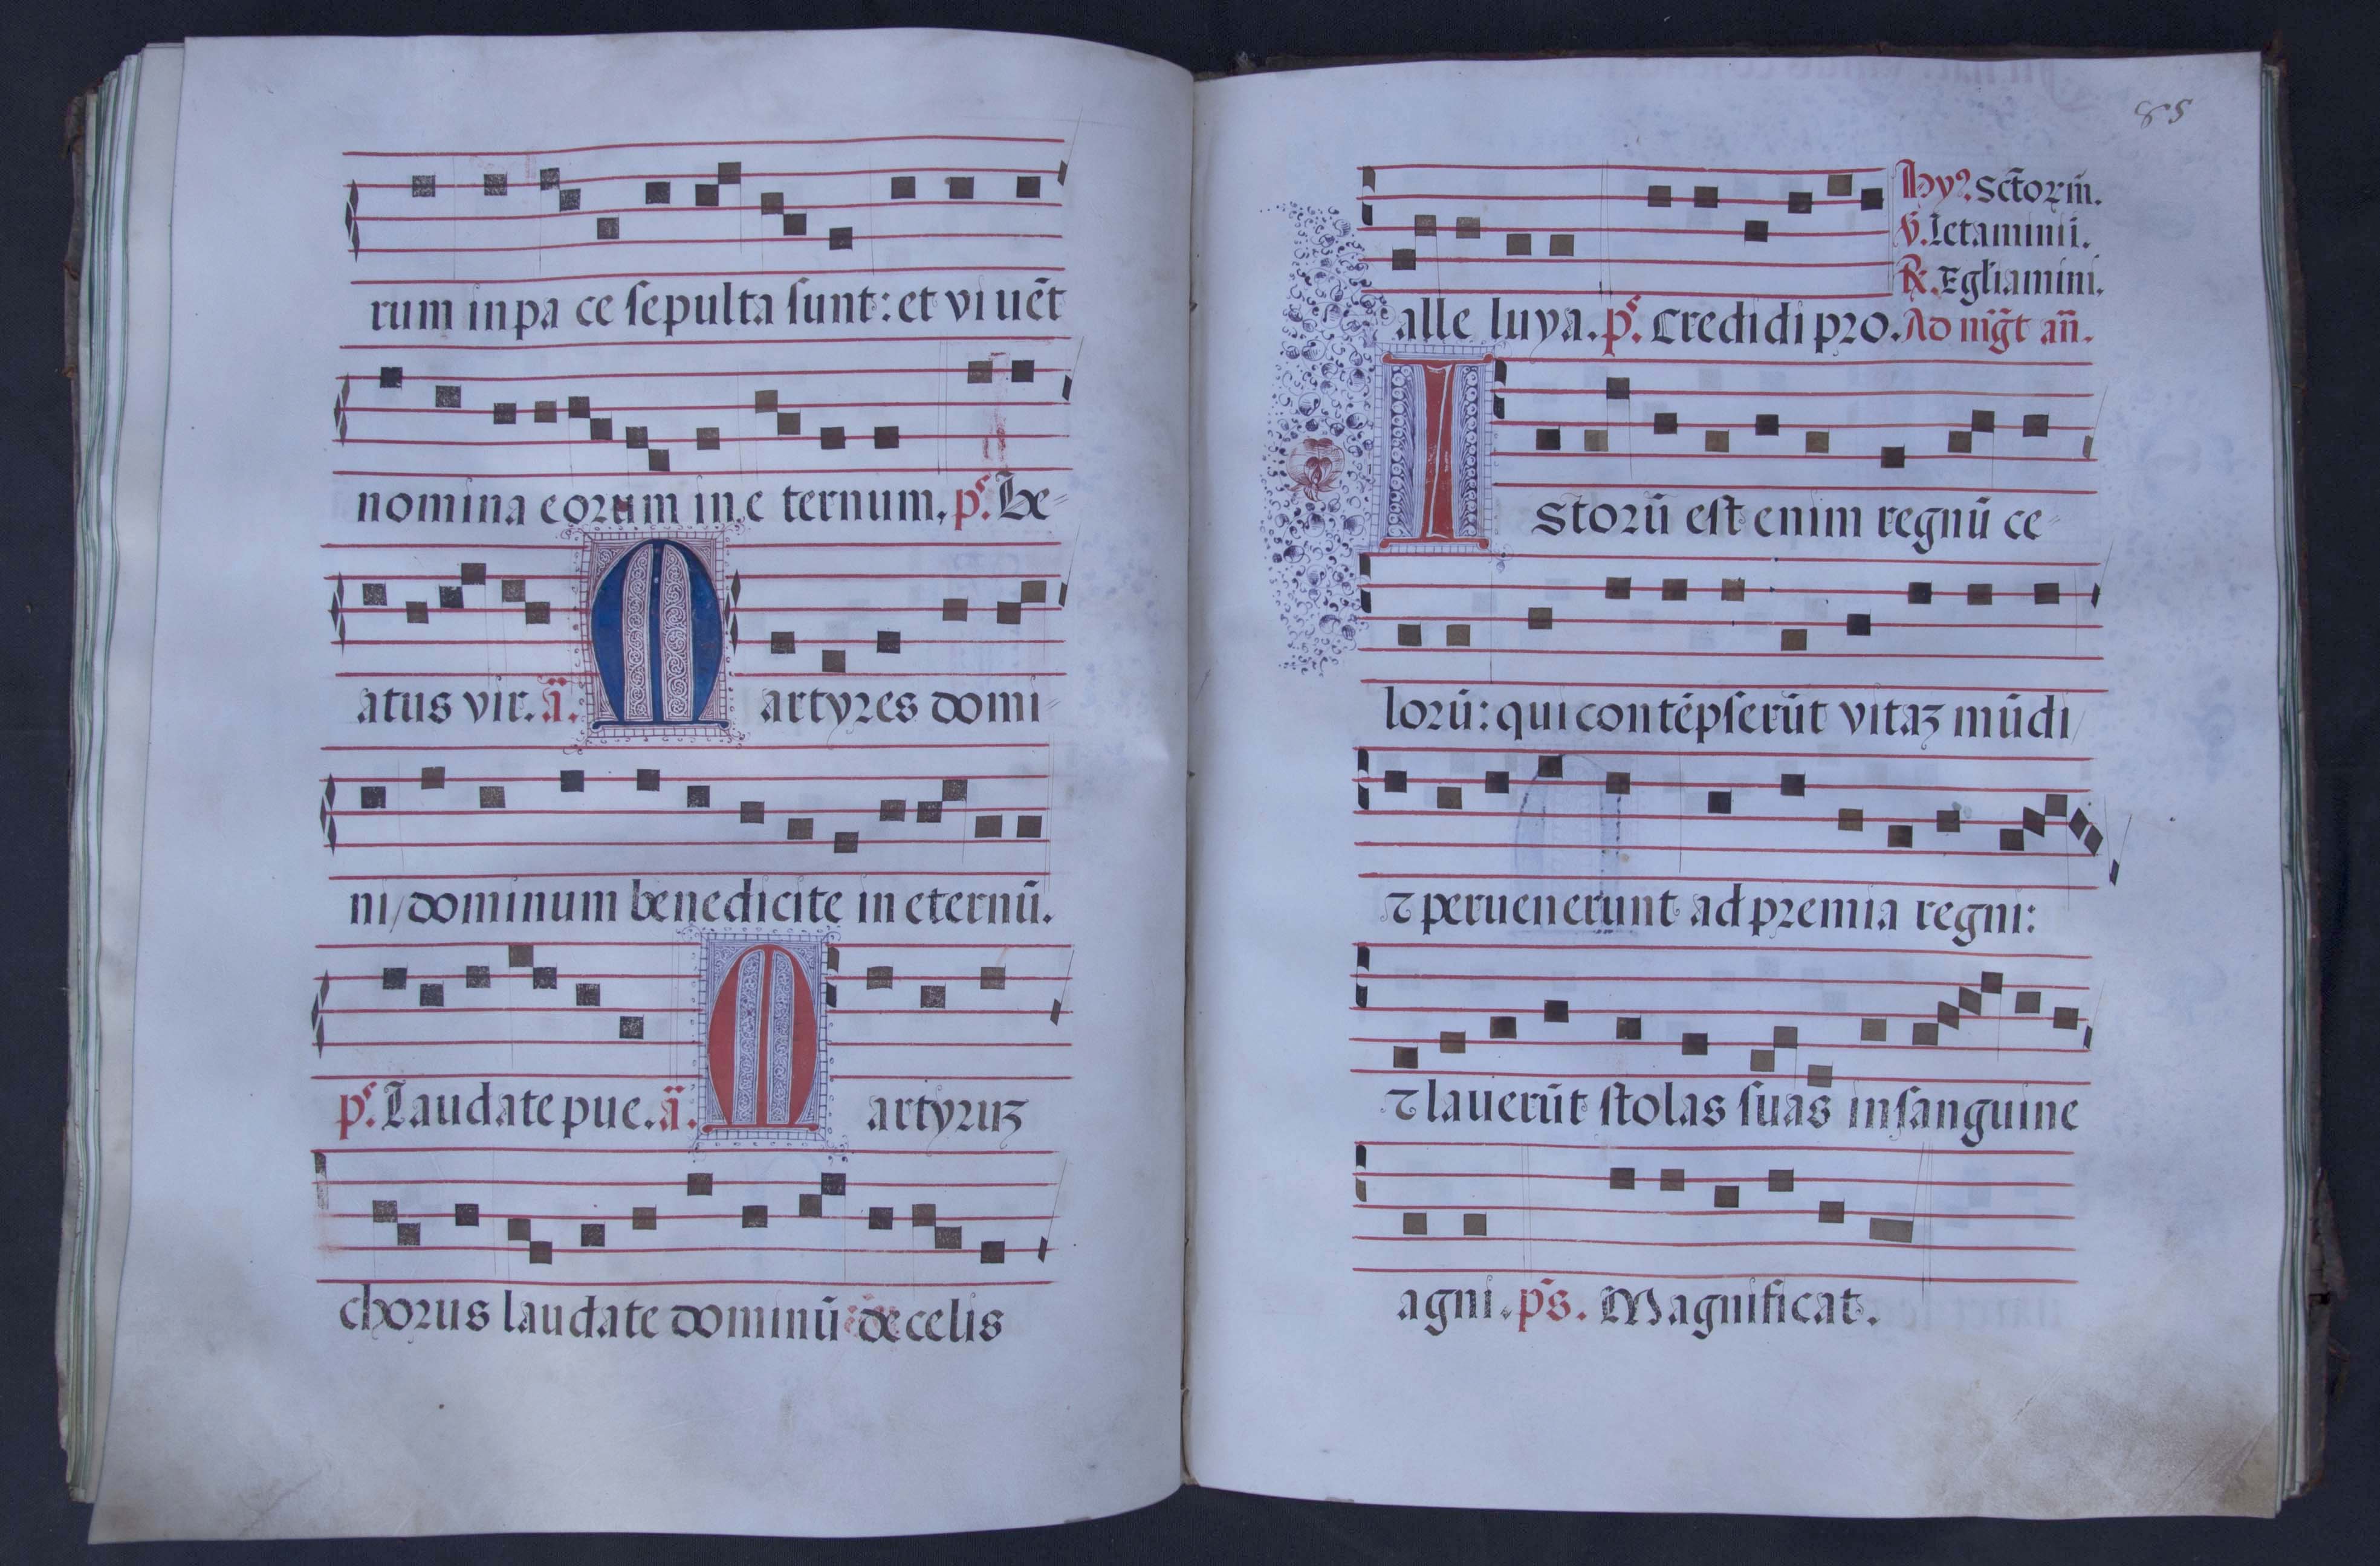 rum in pa ce sepulta sunt: et vi uēt
nomina eorum in e ternum. ps. Be-
atus vir. añ. M artyres domi-
ni/dominum benedicite in eternū.
ps. Laudate pue. añ. M artyruꝫ
chorus laudate dominū de celis
85
Hyꝰ. Sctōrum̄.
alle luya. ps. Credidi pro. Ad mḡt añ.
I storū est enim regnū ce-
lorū: qui contēpserūt vitaꝫ mūdi
⁊ peruenerunt ad premia regni:
⁊ lauerūt stolas suas in sanguine
agni. ps. Magnificat.